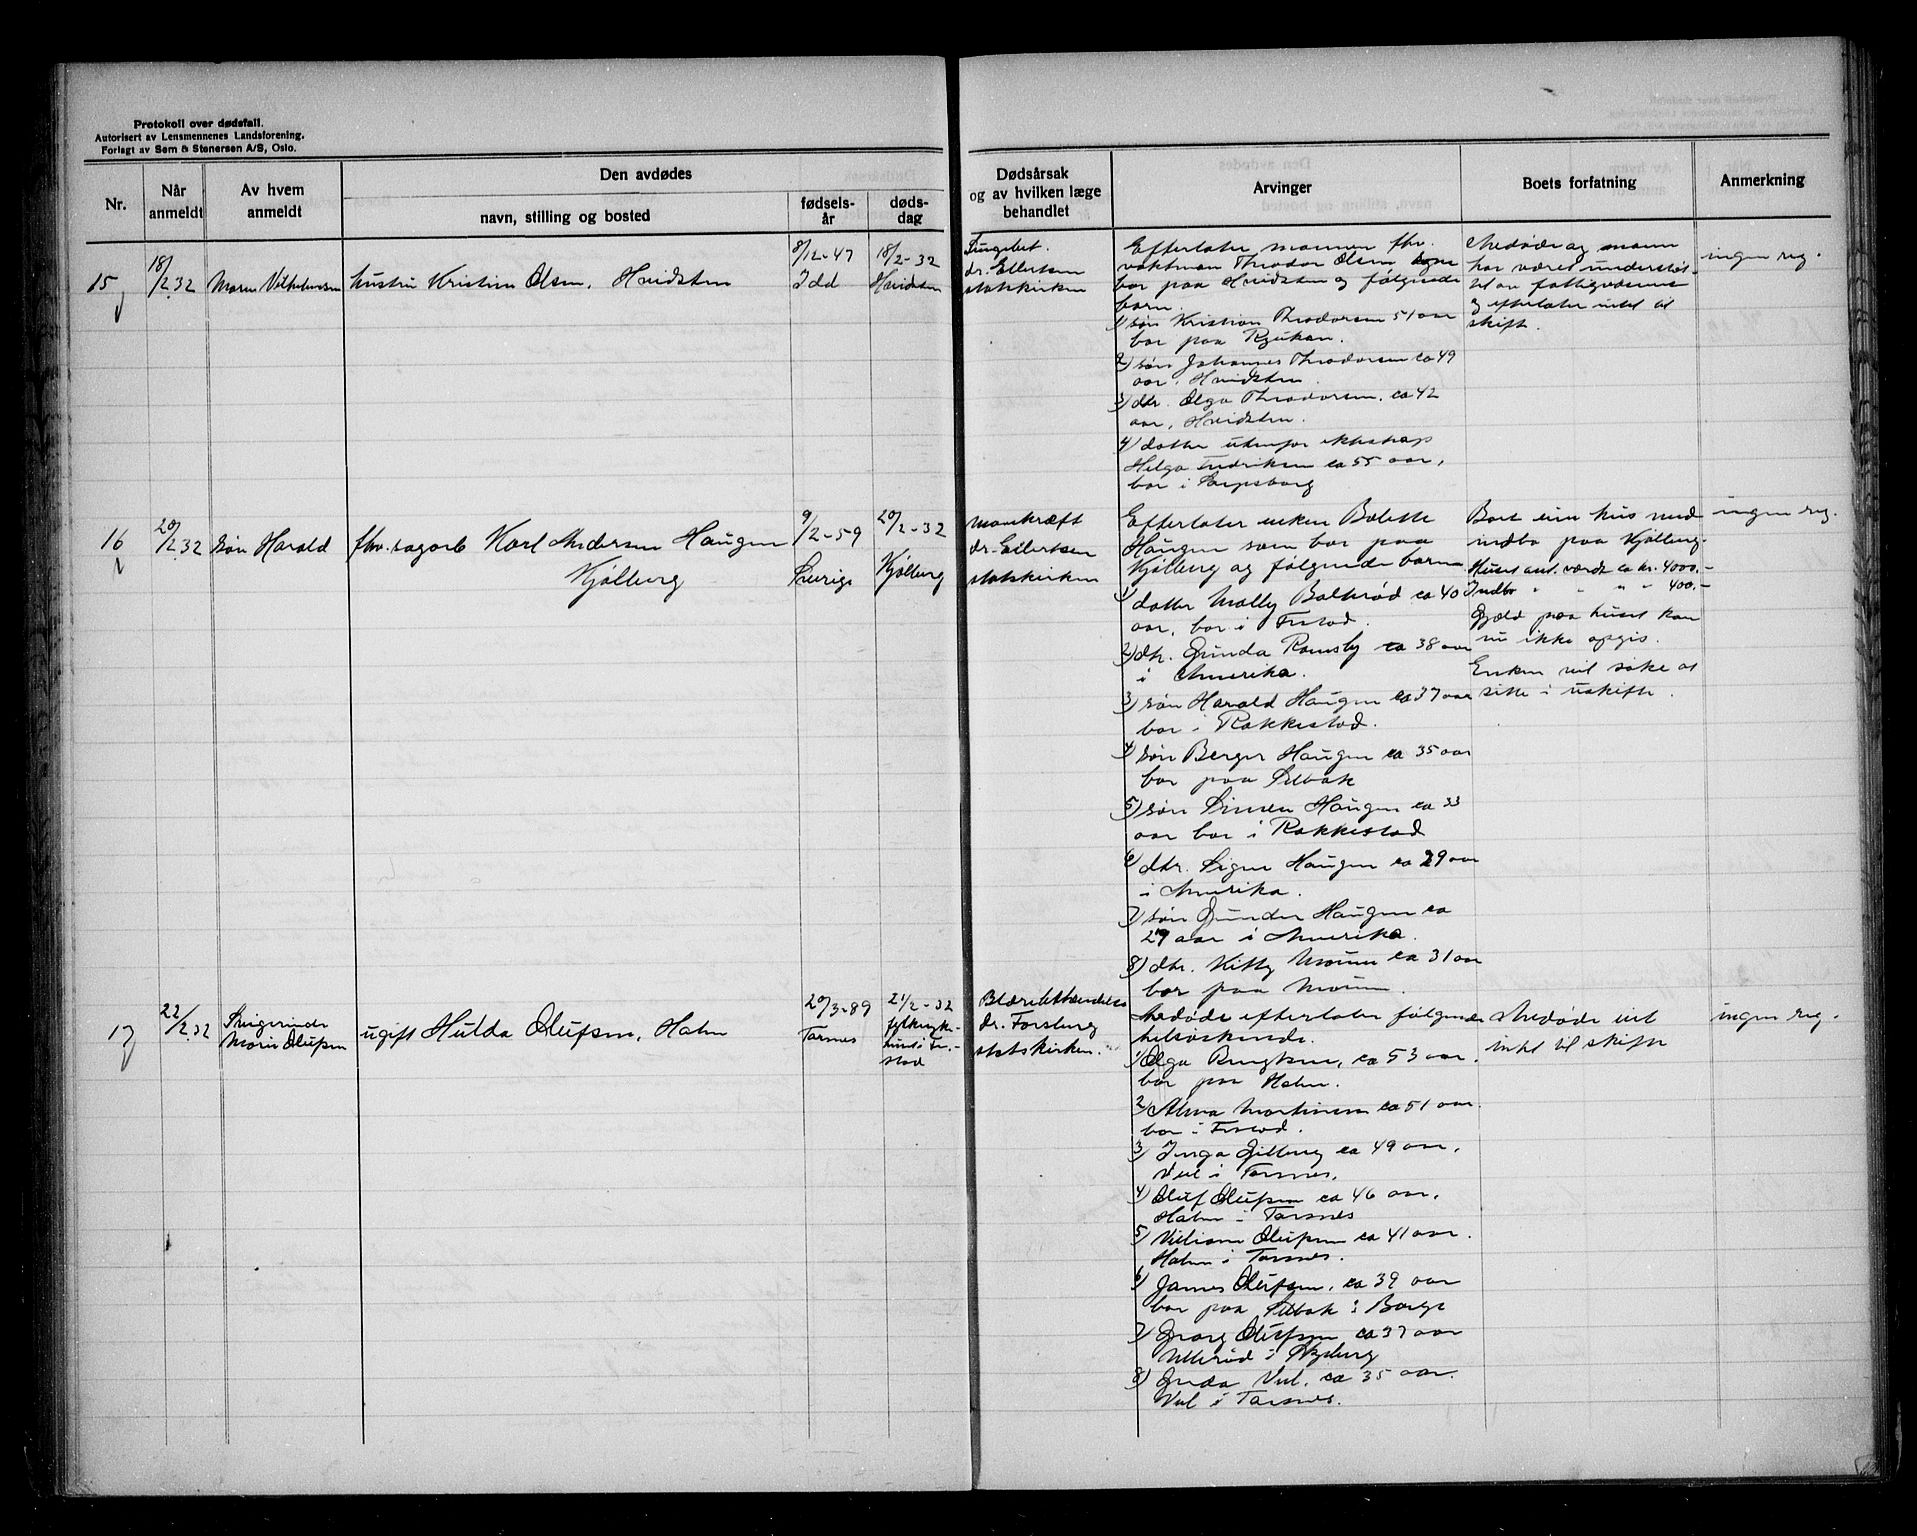 Protokoll over dødsfall.
Autorisert av Lensmennenes Landsforening.
Forlagt av Sem & Stenersen A/S, Oslo.
Nr.
Når anmeldt
Av hvem anmeldt
Den avdødes
navn, stilling og bosted
fødsels-år
døds-dag
Dødsårsak og av hvilken læge behandlet
Arvinger
Boets forfatning
Anmerkning
15
18/2.32
hustru Kristine Olsen, Hvidsten
8/12-47
Idd
18/2-32
Hvidsten
dr. Eilertsen
statskirken
Efterlater mannen fhv.
vaktman Theodor Olsen
bor paa Hvidsten og følgende
barn.
1) søn Kristian Theodorsen 51 aar
bor paa Rjukan.
2) søn Johannes Theodorsen ca 49
aar, Hvidsten.
3) dtr. Olga Theodorsen, ca 42
aar, Hvidsten.
4) datter utenfor ekteskap
Helga Fredriksen ca 55 aar,
bor i Sarpsborg
Avdøde og mann
har været understøt-
tet av fattigvæsenet
og efterlater intet til
skifte.
ingen reg.
16
20/2.32
søn Harald
fhv. sagarb Karl Andersen Haugen
Kjølberg
9/2-59
Sverige
20/2-32
Kjølberg
mavekræft
dr. Eilertsen
statskirken
Efterlater enken Bolette
Haugen som bor paa
Kjølberg og følgende barn
1) datter Molly Balterød ca 40
aar, bor i Frstad.
2) dtr. Gunda Ramsby ca 38 aar
i Amerika.
3) søn Harald Haugen ca 37 aar
bor i Rakkestad.
4) søn Berger Haugen ca 35 aar
bor paa Selbak
5) søn Simen Haugen ca 33
aar bor i Rakkestad
6) dtr. Signe Haugen ca 29 aar
i Amerika.
7) søn Gunder Haugen ca
27 aar i Amerika.
8) dtr. Kitty Moum ca 31 aar
bor paa Moum.
Boet eier hus med
indbo paa Kjølberg.
Huset ant. værdt ca kr. 4000,-
Indbo " " " " 400,-
Gjæld paa huset kan
nu ikke opgis.
Enken vil søke at
sitte i uskifte.
ingen reg.
17
22/2.32
Svigerinde
Marie Olufsen
ugift Hulda Olufsen, Holm
20/3-89
Torsnes
21/2-32
fylkesyke-
huset i Fr.-
stad
Blærebetændelse
dr. Forsberg
statskirken.
Avdøde efterlater følgende
helsøskende.
1) Olga Bengtsen, ca 53 aar,
bor paa Holm.
2) Alma Martinsen ca 51 aar
bor i Frstad.
3) Inga Gilberg ca 49 aar,
Vel i Torsnes.
4) Oluf Olufsen ca 46 aar,
Holm i Torsnes
5) Villiam Olufsen ca 41 aar.
Holm i Torsnes.
6) James Olufsen, ca 39 aar
bor paa Selbak i Borge
7) Georg Olufsen ca 37 aar
Ullerød i Skjeberg
8) Gerda Vel, ca 35 aar.
Vel i Torsnes.
Avdøde eiet
intet til skifte
ingen reg.